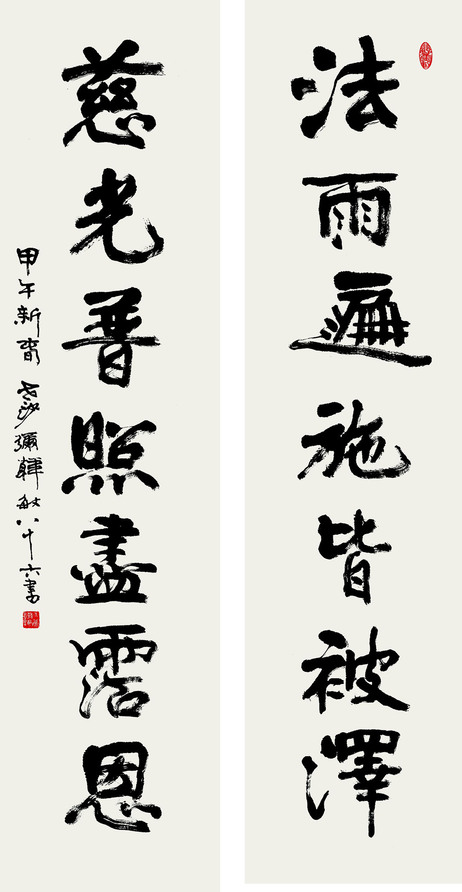 法雨遍施皆被澤
慈光普照盡霑恩
甲午新春 老沙彌韓敏八十六書